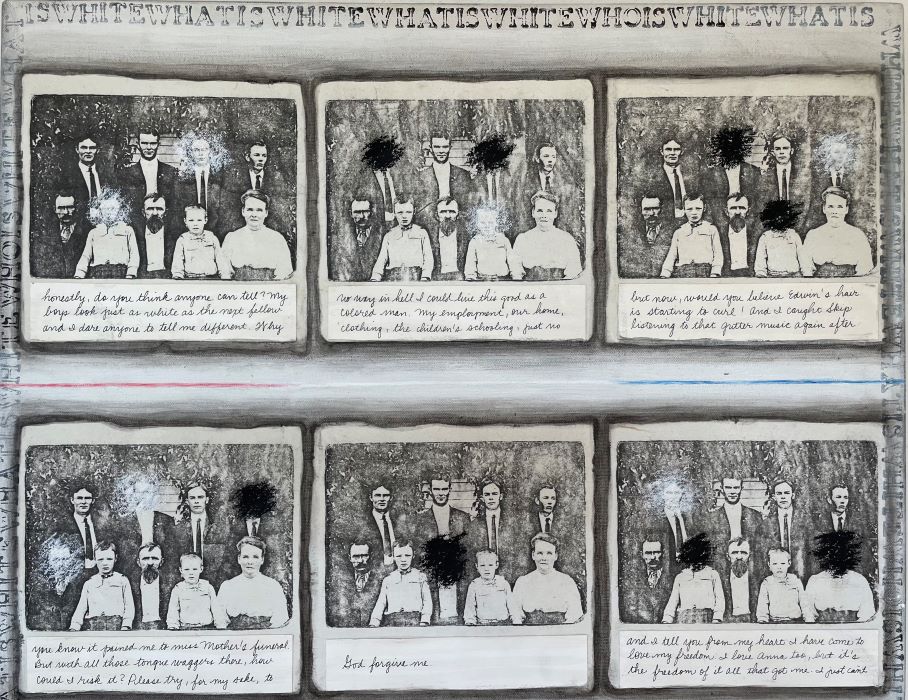 ISWHITEWHATISWHITEWHATISWHITEWHOISWHITEWHATIS
honestly, do you think anyone can tell? My
boys look just as white as the next fellow
and I dare anyone to tell me different. Why
no way in hell I could live this good as a
colored man. My employment, our home,
clothing, the children's schooling, just no
but now, would you believe Edwin's hair
is starting to curl! And I caught Skip
listening to that gutter music again after
you know it pained me to miss Mother's funeral.
But with all those tongue waggers there, how
could I risk it? Please try, for my sake, to
God forgive me
and I tell you from my heart I have come to
love my freedom. I love Anna too, but it's
the freedom of it all that got me. I just can't